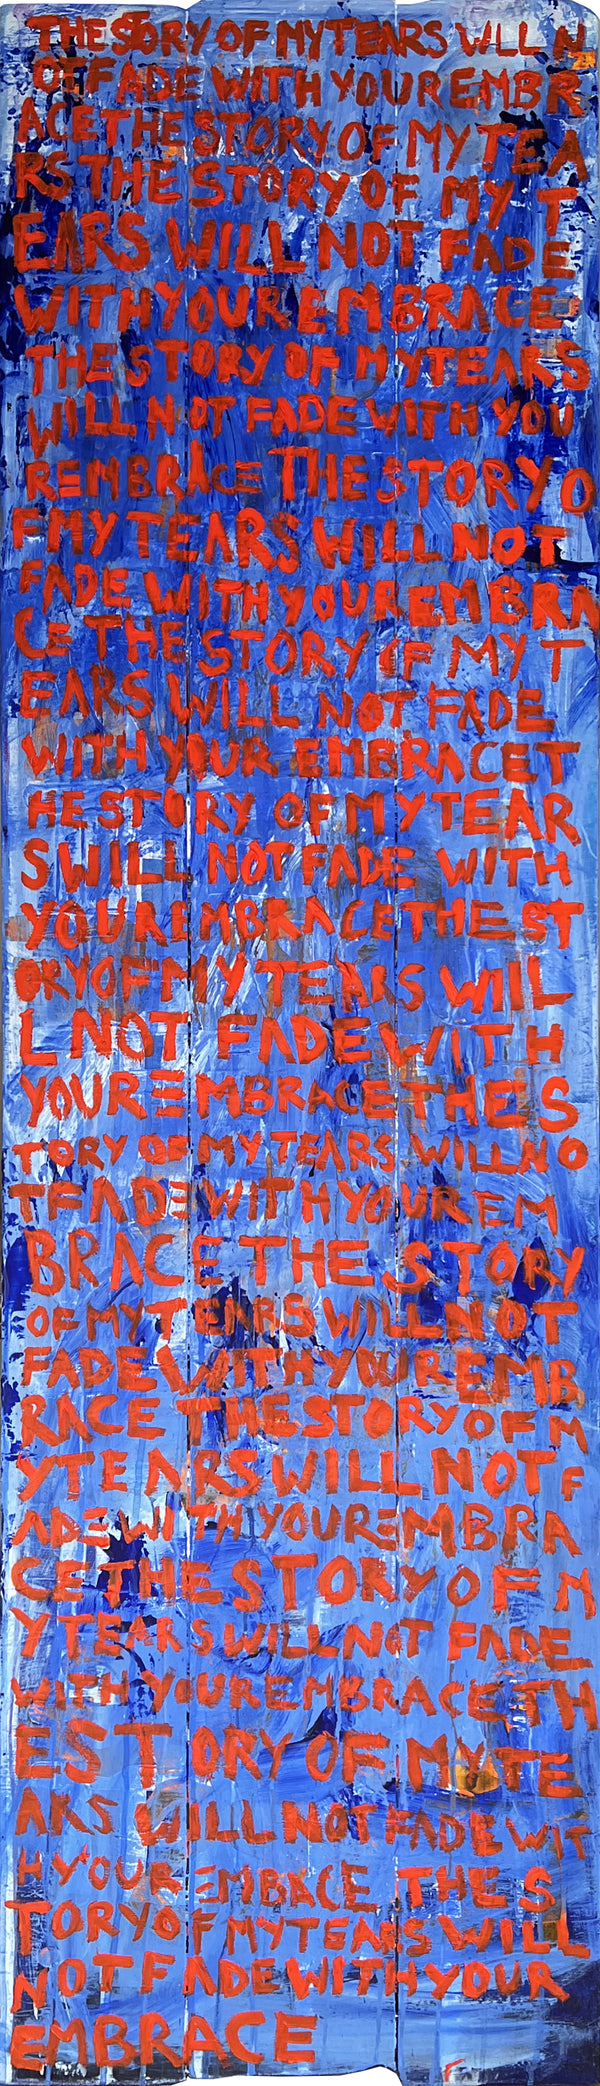 THE STORY OF MY TEARS WILL N
OT FADE WITH YOUR EMBR
ACE THE STORY OF MY TEA
RS THE STORY OF MY T
EARS WILL NOT FADE
WITH YOUR EMBRACE
THE STORY OF MY TEARS
WILL NOT FADE WITH YOU
R EMBRACE THE STORY O
F MY TEARS WILL NOT
FADE WITH YOUR EMBRA
CE THE STORY OF MY T
EARS WILL NOT FADE
WITH YOUR EMBRACE T
HE STORY OF MY TEAR
S WILL NOT FADE WITH
YOUR EMBRACE THE ST
ORY OF MY TEARS WIIL
L NOT FADE WITH
YOUR EMBRACE THE S
TORY OF MY TEARS WILL NO
T FADE WITH YOUR EM
BRACE THE STORY
OF MY TEARS WILL NOT
FADE WITH YOUR EMB
RACE THE STORY OF M
Y TEARS WILL NOT F
ADE WITH YOUR EMBRA
CE THE STORY OF M
Y TEARS WILL NOT FADE
WITH YOUR EMBRACE TH
E STORY OF MY TE
ARS WILL NOT FADE WIT
H YOUR EMBACE THE S
TORY OF MY TEARS WILL
NOT FADE WITH YOUR
EMBRACE